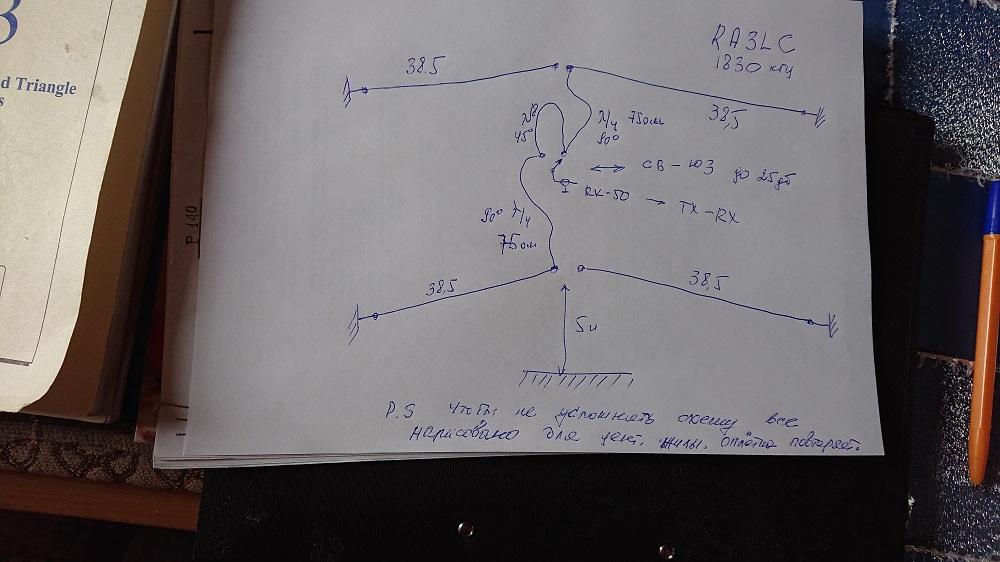 RA3LC
1830 кгц
38.5
38,5
λ/8
45°
λ/4 75ом
90°
СВ - ЮЗ до 25дб
RK-50 → TX-RX
90° λ/4
75ом
38,5
38,5
5м
P.S Чтобы не усложнять схему все
нарисовано для цент. жилы. оплётка повторяет.
d Triangle
s
P.140